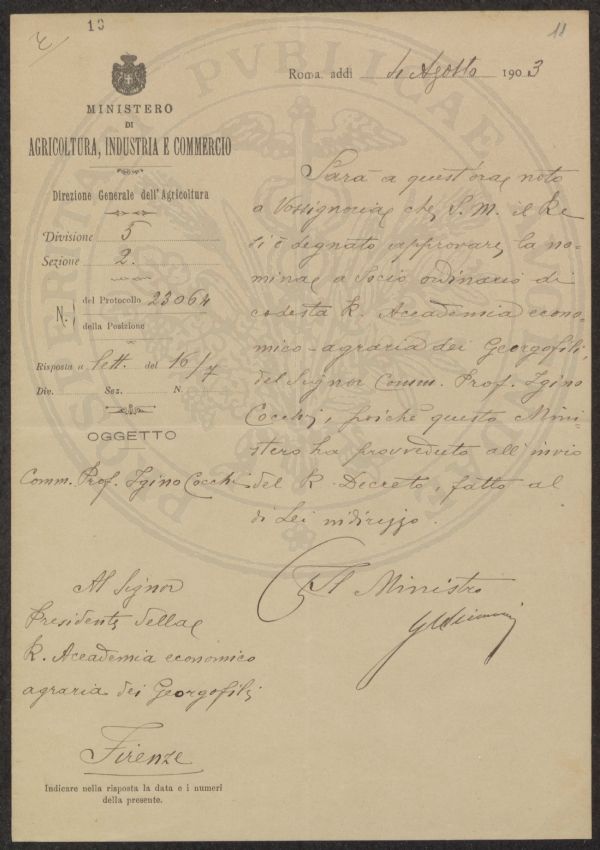 13
11
MINISTERO
DI
AGRICOLTURA, INDUSTRIA E COMMERCIO
Direzione Generale dell'Agricoltura
Divisione 5
Sezione 2.
N. del Protocollo 23064
della Posizione
Risposta a lett. del 16/7
Div. Sez. N.
OGGETTO
Comm. Prof. Igino Cocchi
Roma, addì 4 Agosto 1903
Sarà a quest'ora noto
a Vossignoria che S. M. il Re
si è degnato approvare la no-
mina a Socio ordinario di
codesta R. Accademia econo-
mico-agraria dei Georgofili,
del Signor Comm. Prof. Igino
Cocchi, poichè questo Mini-
stero ha provveduto all'invio
del R. Decreto, fatto al
di Lei indirizzo.
Il Ministro
Al Signor
Presidente della
R. Accademia economico
agraria dei Georgofili
Firenze
Indicare nella risposta la data e i numeri
della presente.
PROSPERITATI PVBLICAE